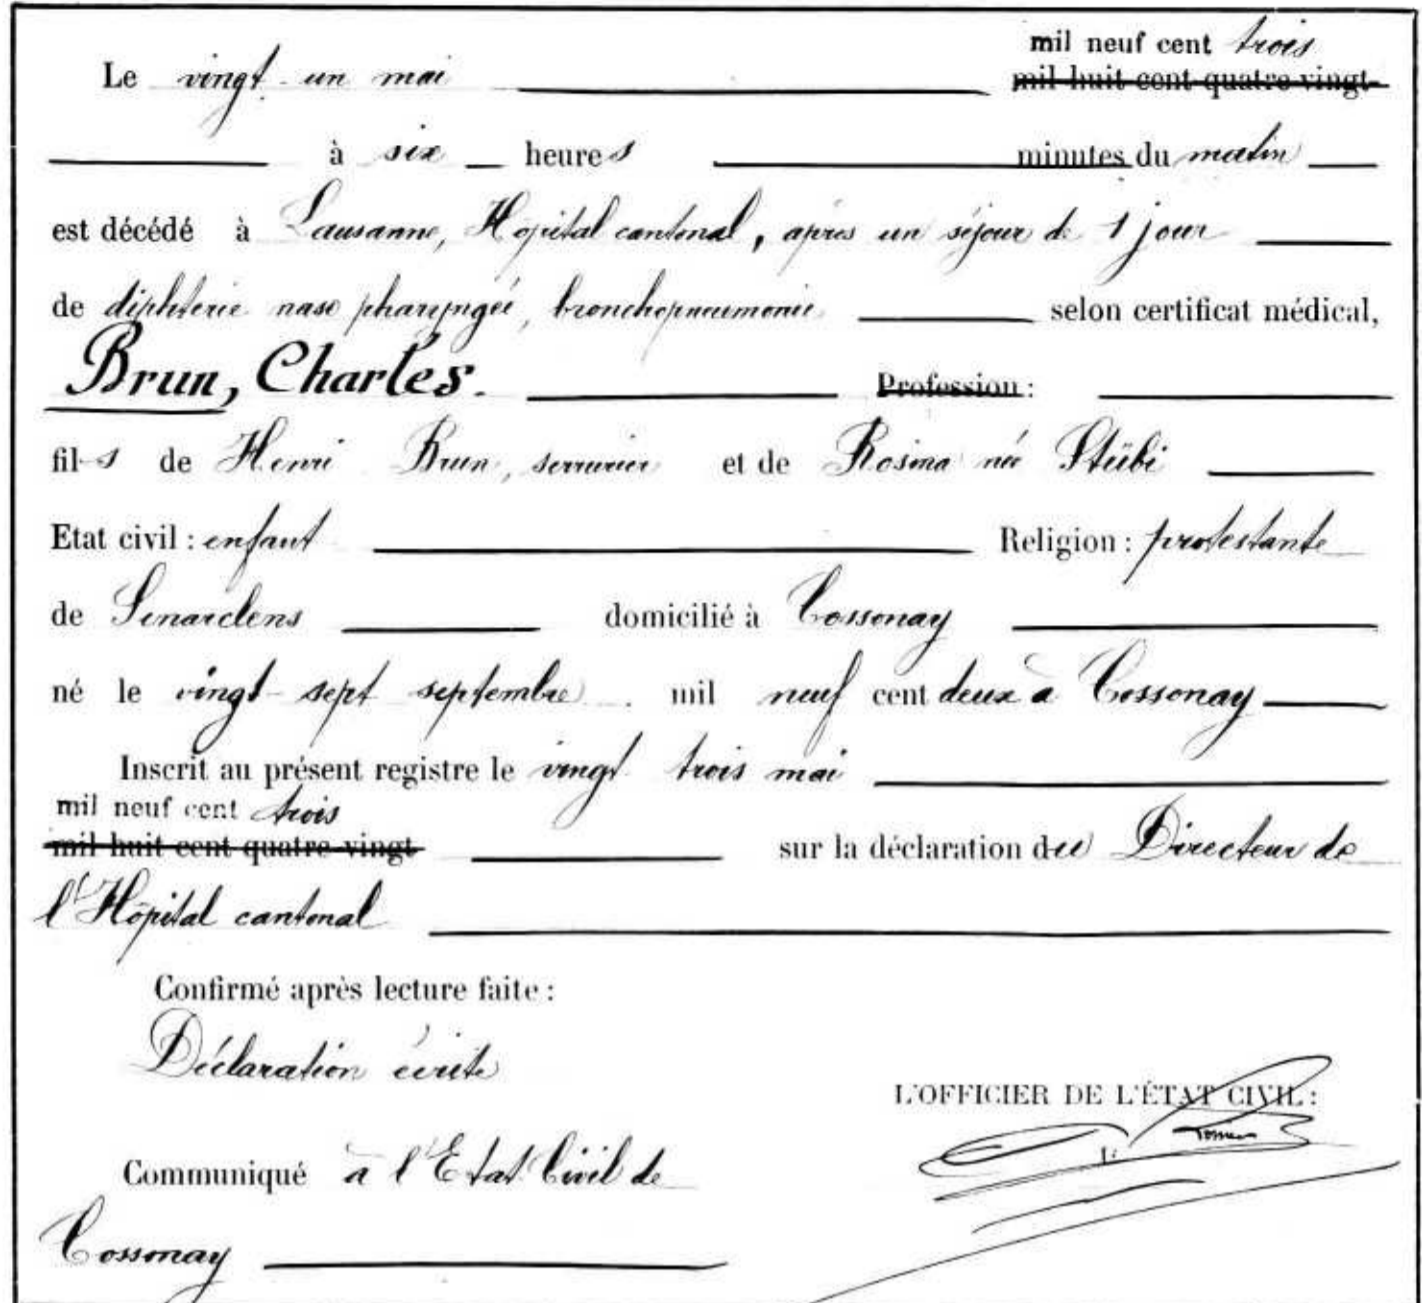 mil neuf cent trois
Le vingt-un mai mil huit cent quatre-vingt-
à six heures minutes du matin
est décédé à Lausanne, Hôpital cantonal, après un séjour de 1 jour
de diphterie naso pharyngée, bronchopneumonie selon certificat médical,
Brun, Charles. Profession :
fils de Henri Brun, serrurier et de Rosina née Stübi
Etat civil : enfant Religion : protestante
de Senarclens domicilié à Cossonay
né le vingt-sept septembre mil neuf cent deux à Cossonay
Inscrit au présent registre le vingt trois mai
mil neuf cent trois
mil huit cent quatre-vingt sur la déclaration du Directeur de
l'Hôpital cantonal
Confirmé après lecture faite :
Déclaration écrite
L'OFFICIER DE L'ÉTAT CIVIL :
Communiqué à l'Etat Civil de
Cossonay